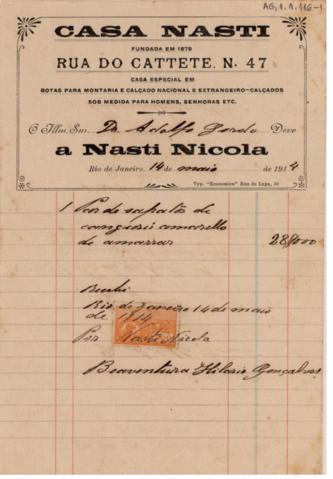 AG,1.1.116-1
CASA NASTI
FUNDADA EM 1879
RUA DO CATTETE, N. 47
CASA ESPECIAL EM
BOTAS PARA MONTARIA E CALÇADO NACIONAL E EXTRANGEIRO-CALÇADOS
SOB MEDIDA PARA HOMENS, SENHORAS ETC.
O Illm. Snr. Dr. Adolfo Gordo Deve
a Nasti Nicola
Rio de Janeiro, 14 de maio de 1914
Typ. "Economica" Rua da Lapa,
1 Par de sapatos de
cangurú amarello
de amarrar 28$000
Recebi
Rio de Janeiro 14 de maio
de 1914
Por Nasti Nicola
Boaventura Hilario Gonçalves